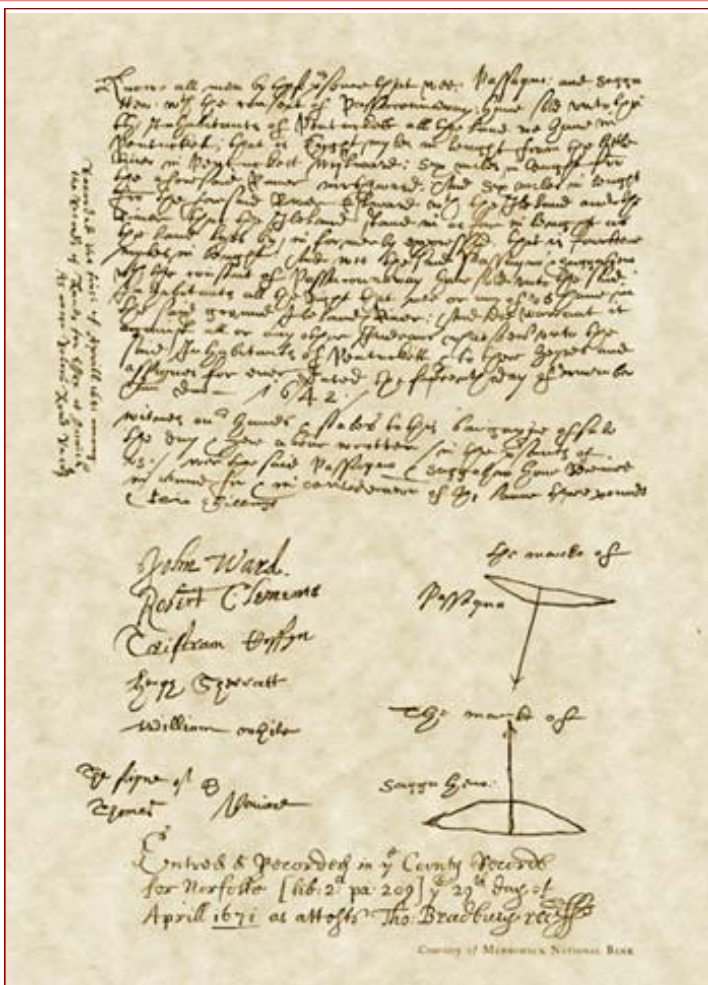 Know all men by these presents that wee Passaquo: and Sagga
Hew: with the consent of Passaconnaway; have sold unto
the Inhabitants of Pentuckett all the land we have in
Pentuckett; that is Eyght myles in length from the little
River in Pentuckett westward: six miles in length from
the aforesaid River northward: And six miles in length
from the foresaid River Eastward with the Ileland and the
River that the Ileland stand in as far in length as
the land lyes by, as formerly expressed, that is fourteen
myles in length: And wee the said Passaquo & Saggahew
with the consent of Passaconnaway have sold unto the said
Inhabitants all the right that wee or any of us have in
the said ground Ileland & River: And do warrant it
against all or any other Indeans unto the
said Inhabitants of Pentuckett & to there heyres and
assignes for ever Dated the fifteenth day of november
Ann Dom 1642.
witnes our hands & seales to this bargayne of sale
the day & yere above written in the presents of
us. wee the said Passaquo & Saggahew have
in hand for & in of the same three pounds
& tenn shillings
Recorded the first of Aprill
the Records of Lands for Essex at Ipswich
As
John Ward.
Robert Clements
Tristram Coffyn
Hugh Sherratt
William White
The signe of
Thomas Davis
the marke of
Passaquo
The marke of
Saggahew:
Entred & Recorded in yᵉ County Records
for Norfolke [lib: 2ᵈ pa: 209] yᵉ 29ᵗʰ day of
Aprill 1671 as attests Tho: Bradbury rec
Courtesy of MERRIMACK NATIONAL BANK